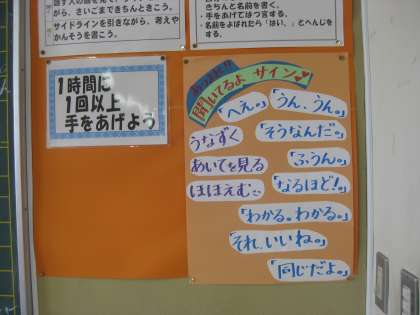 がら、さいごまできちんときこう。
サイドラインを引きながら、考えや
かんそうを書こう。
きちんと名前を書く。
・手をあげてはつ言する。
・名前をよばれたら「はい。」とへんじを
する。
1時間に
1回以上
手をあげよう
聞いてるよ サイン
「へぇ。」
「うん、うん。」
うなずく
「そうなんだ。」
あいてを見る
「ふうん。」
ほほえむ
「なるほど!」
「わかる。わかる。」
「それ、いいね。」
「同じだよ。」